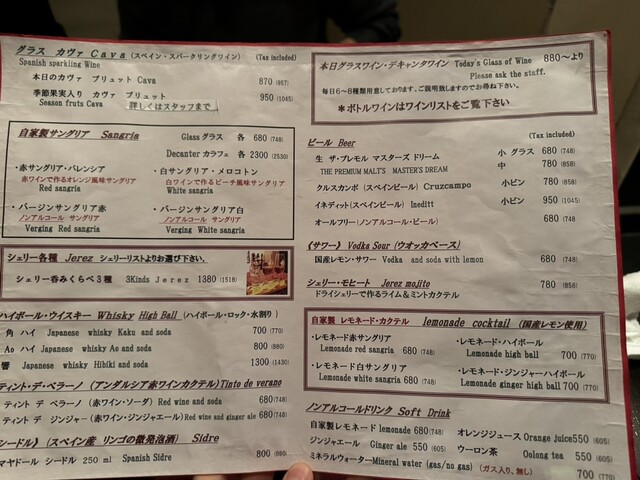 グラス カヴァ Cava (スペイン・スパークリングワイン) (Tax included)
Spanish sparkling Wine
本日のカヴァ ブリュット Cava 870 (957)
季節果実入り カヴァ ブリュット 950 (1045)
Season fruts Cava 詳しくはスタッフまで
自家製サングリア Sangria Glass グラス 各 680 (748)
Decanter カラフェ 各 2300 (2530)
・赤サングリア・バレンシア
赤ワインで作るオレンジ風味サングリア
Red sangria
・白サングリア・メロコトン
白ワインで作るピーチ風味サングリア
White sangria
・バージンサングリア赤
ノンアルコール サングリア
Verging Red sangria
・バージンサングリア白
ノンアルコール サングリア
Verging White sangria
シェリー各種 Jerez シェリーリストよりお選び下さい。
シェリー呑みくらべ3種 3Kinds Jerez 1380 (1518)
ハイボール・ウイスキー Whisky High Ball (ハイボール・ロック・水割り)
角 ハイ Japanese whisky Kaku and soda 700 (770)
Ao ハイ Japanese whisky Ao and soda 800 (880)
響 Japanese whisky Hibiki and soda 1300 (1430)
ティント・デ・ベラーノ (アンダルシア赤ワインカクテル) Tinto de verano
ティント デ ベラーノ (赤ワイン・ソーダ) Red wine and soda 680 (748)
ティント デ ジンジャー (赤ワイン・ジンジャエール) Red wine and ginger ale 680 (748)
シードル》 (スペイン産 リンゴの微発泡酒) Sidre
マヤドール シードル 250 ml Spanish Sidre 800 (880)
本日グラスワイン・デキャンタワイン Today's Glass of Wine 880〜より
Please ask the staff.
毎日6〜8種類用意しております、ご説明致しますのでお尋ね下さい。
＊ボトルワインはワインリストをご覧下さい
ビール Beer (Tax included)
生 ザ・プレモル マスターズ ドリーム 小 グラス 680 (748)
THE PREMIUM MALT'S MASTER'S DREAM 中 780 (858)
クルスカンポ (スペインビール) Cruzcampo 小ビン 780 (858)
イネディット(スペインビール) Ineditt 小ビン 950 (1045)
オールフリー(ノンアルコール・ビール) 680 (748
《サワー》 Vodka Sour (ウオッカベース)
国産レモン・サワー Vodka and soda with lemon 680 (748)
シェリー・モヒート Jerez mojito 780 (858)
ドライシェリーで作るライム＆ミントカクテル
自家製 レモネード・カクテル lemonade cocktail (国産レモン使用)
・レモネード赤サングリア
Lemonade red sangria 680 (748)
・レモネード・ハイボール
Lemonade high ball 700 (770)
・レモネード白サングリア
Lemonade white sangria 680 (748)
・レモネード・ジンジャーハイボール
Lemonade ginger high ball 700 (770)
ノンアルコールドリンク Soft Drink
自家製レモネード lemonade 680 (748) オレンジジュース Orange juice 550 (605)
ジンジャエール Ginger ale 550 (605) ウーロン茶 Oolong tea 550 (605)
ミネラルウォーター Mineral water (gas/no gas) (ガス入り、無し) 700 (770)